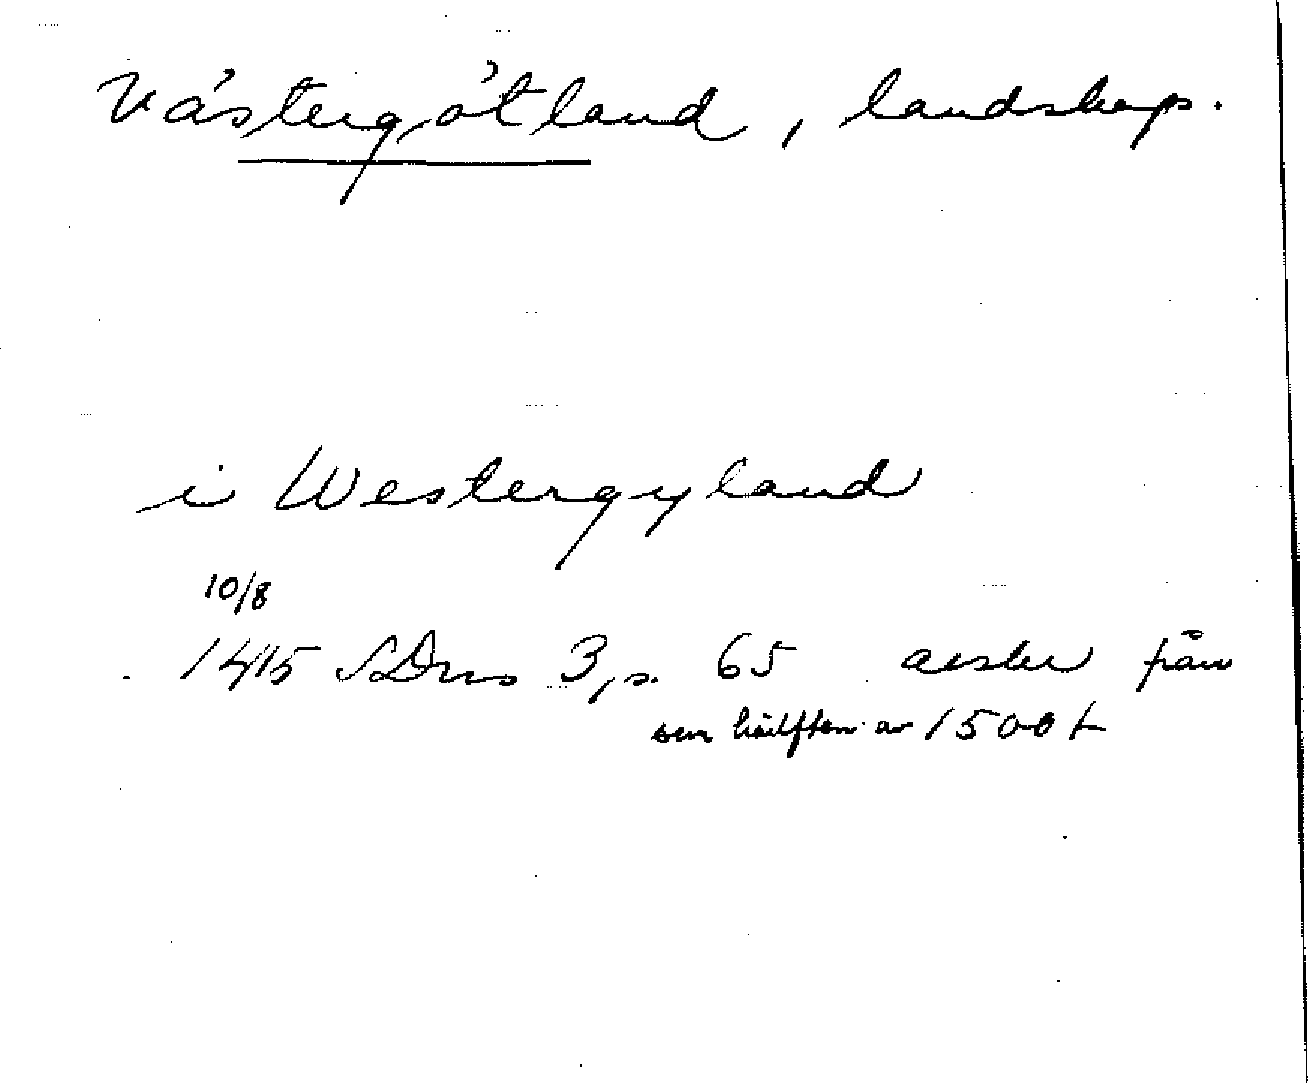 Västergötland, landskap.
i Westergyland
10/8
1415 SDns 3, s. 65 avskr från
sen hälften av 1500 t